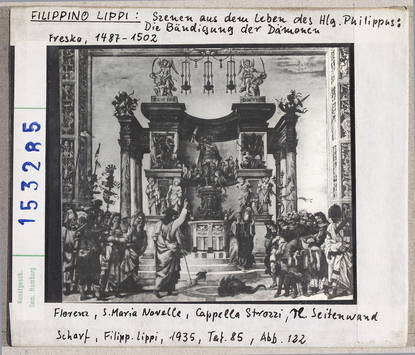 FILIPPINO LIPPI: Szenen aus dem Leben des Hlg. Philippus:
Die Bändigung der Dämonen
Fresko, 1487-1502
153285
Kunstgesch.
Sem. Hamburg
Florenz, S. Maria Novella, Cappella Strozzi, Seitenwand
Scharf, Filipp. Lippi, 1935, Taf. 85, Abb. 122